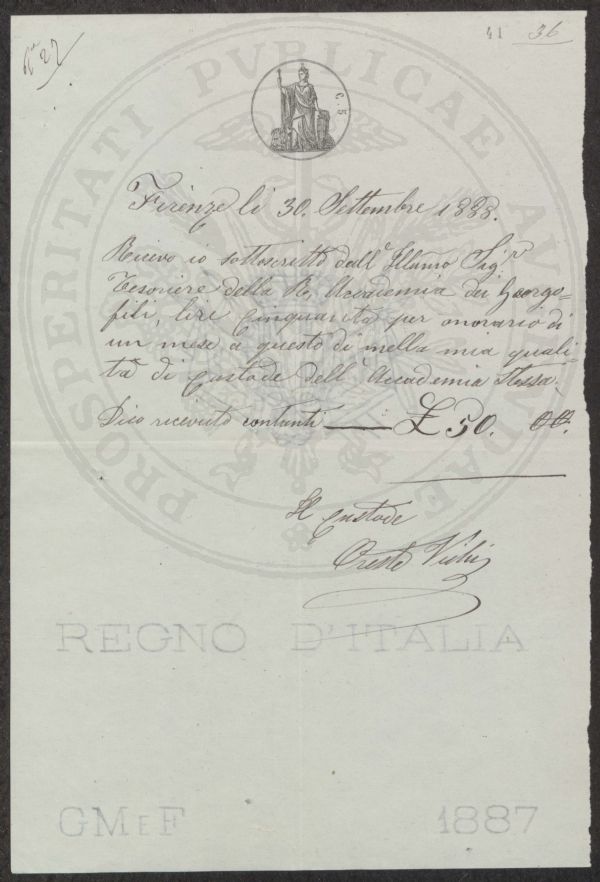 N° 27
41 36
PROSPERITATI PVBLICAE AVGENDAE
C. 5
Firenze li 30. Settembre 1888.
Ricevo io sottoscritto dall' Illmo Sigr
Tesoriere della R. Accademia dei Georgo=
fili, lire Cinquanta per onorario di
un mese a questo dì nella mia quali=
tà di Custode dell' Accademia Stessa.
Dico ricevuto contanti — £ 50. 00.
Il Custode
Oreste Vichi
REGNO D'ITALIA
GMEF 1887